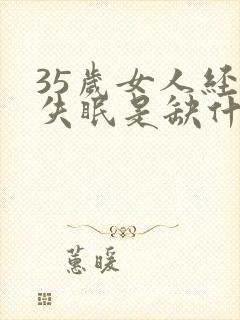 35歲女人經
失眠是缺什
蕙暖